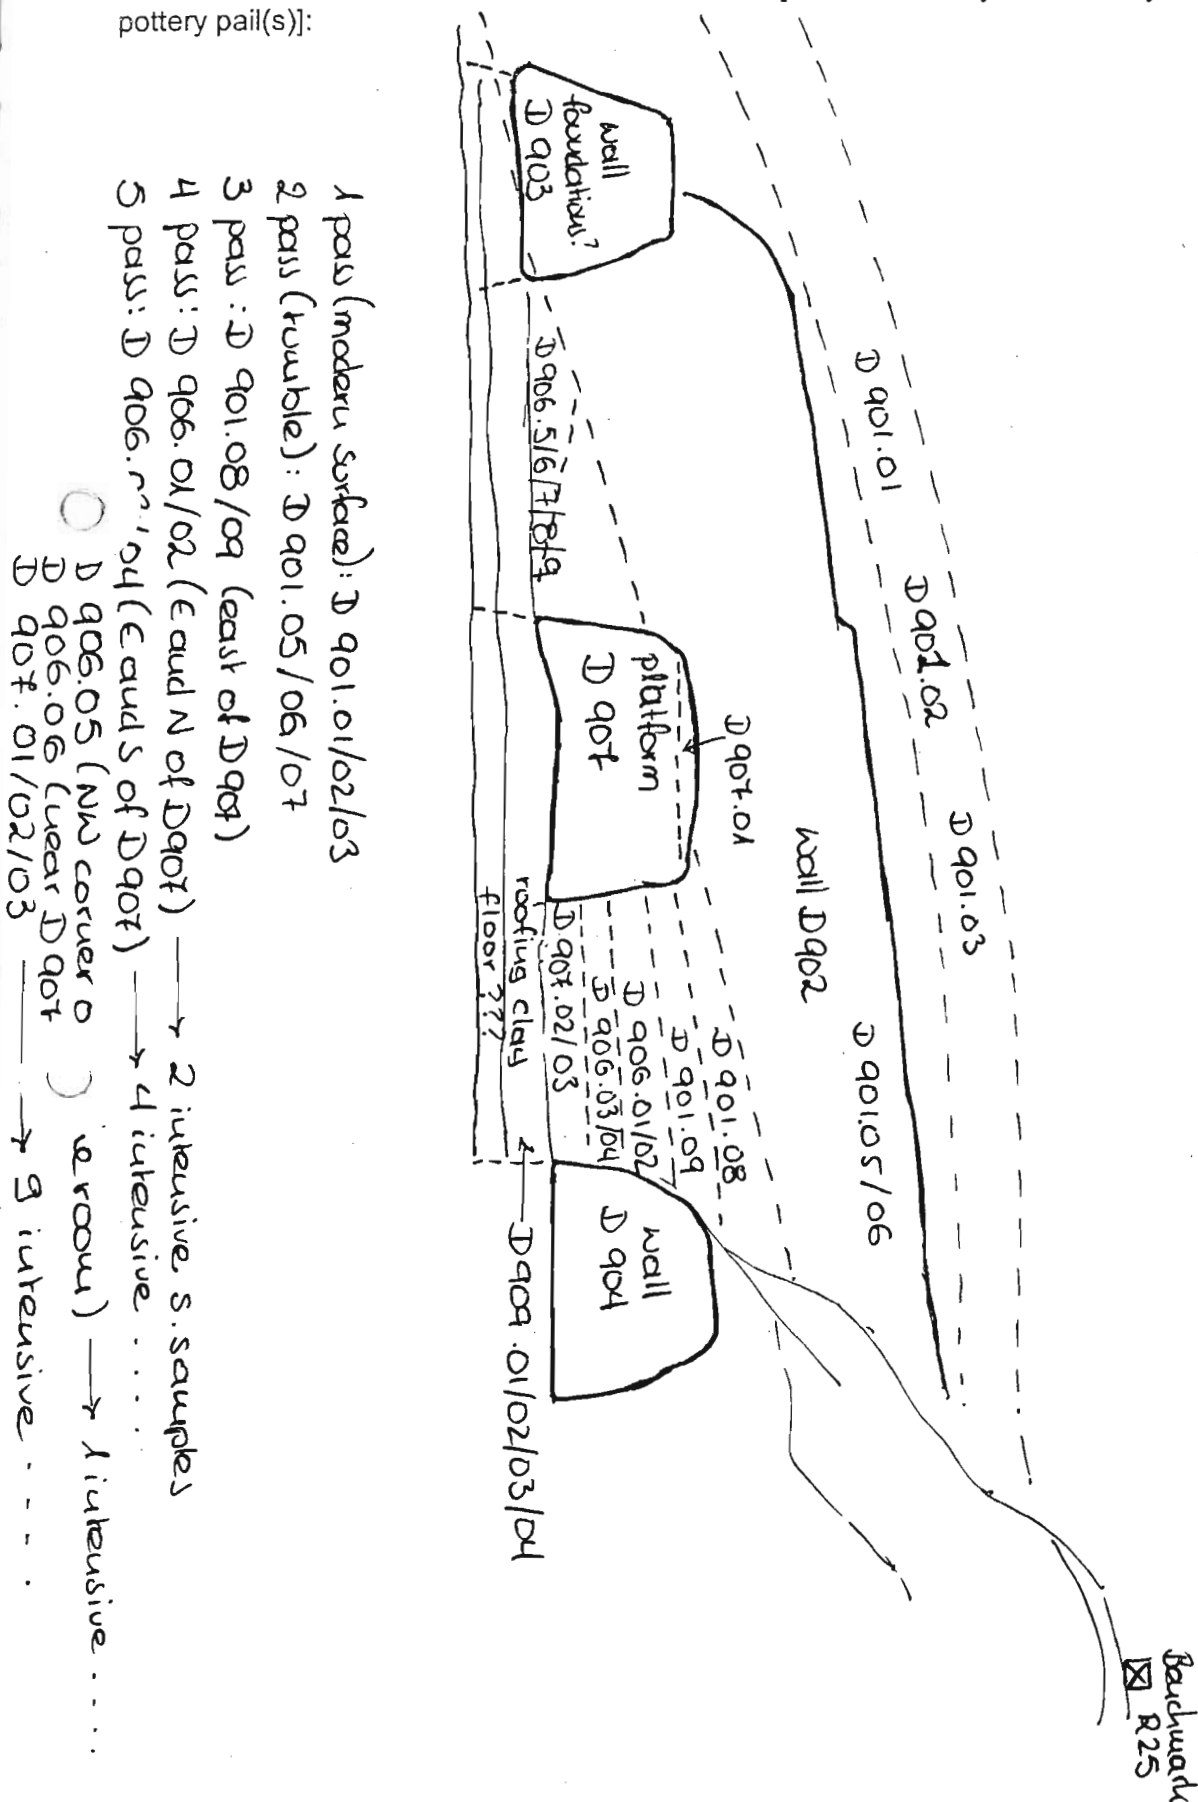 pottery pail(s)]:
Benchmark
R25
D 901.01
D 901.02
D 901.03
D 901.05/06
wall D 902
wall
foundations?
D 903
D 906.5/6/7/8/9
platform
D 907
D 907.01
D 901.08
D 901.09
D 906.01/02
D 906.03/04
D 907.02/03
roofing clay
floor???
wall
D 904
D 909.01/02/03/04
1 pass (modern surface): D 901.01/02/03
2 pass (tumble): D 901.05/06/07
3 pass: D 901.08/09 (east of D 907)
4 pass: D 906.01/02 (E and N of D 907) → 2 intensive s. samples
5 pass: D 906. 04 (E and S of D 907) → 4 intensive ....
D 906.05 (NW corner o e room) → 1 intensive ....
D 906.06 (near D 907
D 907.01/02/03 → 9 intensive ....